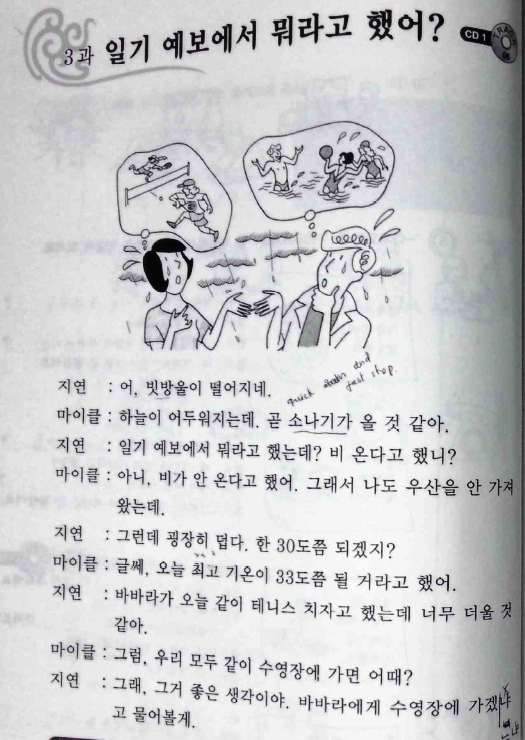 3과 일기 예보에서 뭐라고 했어?
CD 1
지연 : 어, 빗방울이 떨어지네.
quick and
fast stop.
마이클 : 하늘이 어두워지는데. 곧 소나기가 올 것 같아.
지연 : 일기 예보에서 뭐라고 했는데? 비 온다고 했니?
마이클 : 아니, 비가 안 온다고 했어. 그래서 나도 우산을 안 가져
왔는데.
지연 : 그런데 굉장히 덥다. 한 30도쯤 되겠지?
마이클 : 글쎄, 오늘 최고 기온이 33도쯤 될 거라고 했어.
지연 : 바바라가 오늘 같이 테니스 치자고 했는데 너무 더울 것
같아.
마이클 : 그럼, 우리 모두 같이 수영장에 가면 어때?
지연 : 그래, 그거 좋은 생각이야. 바바라에게 수영장에 가겠냐
고 물어볼게.